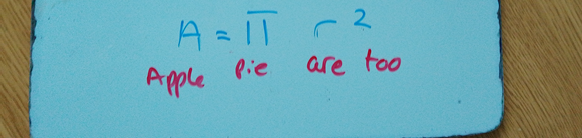 A = π r²
Apple Pie are too